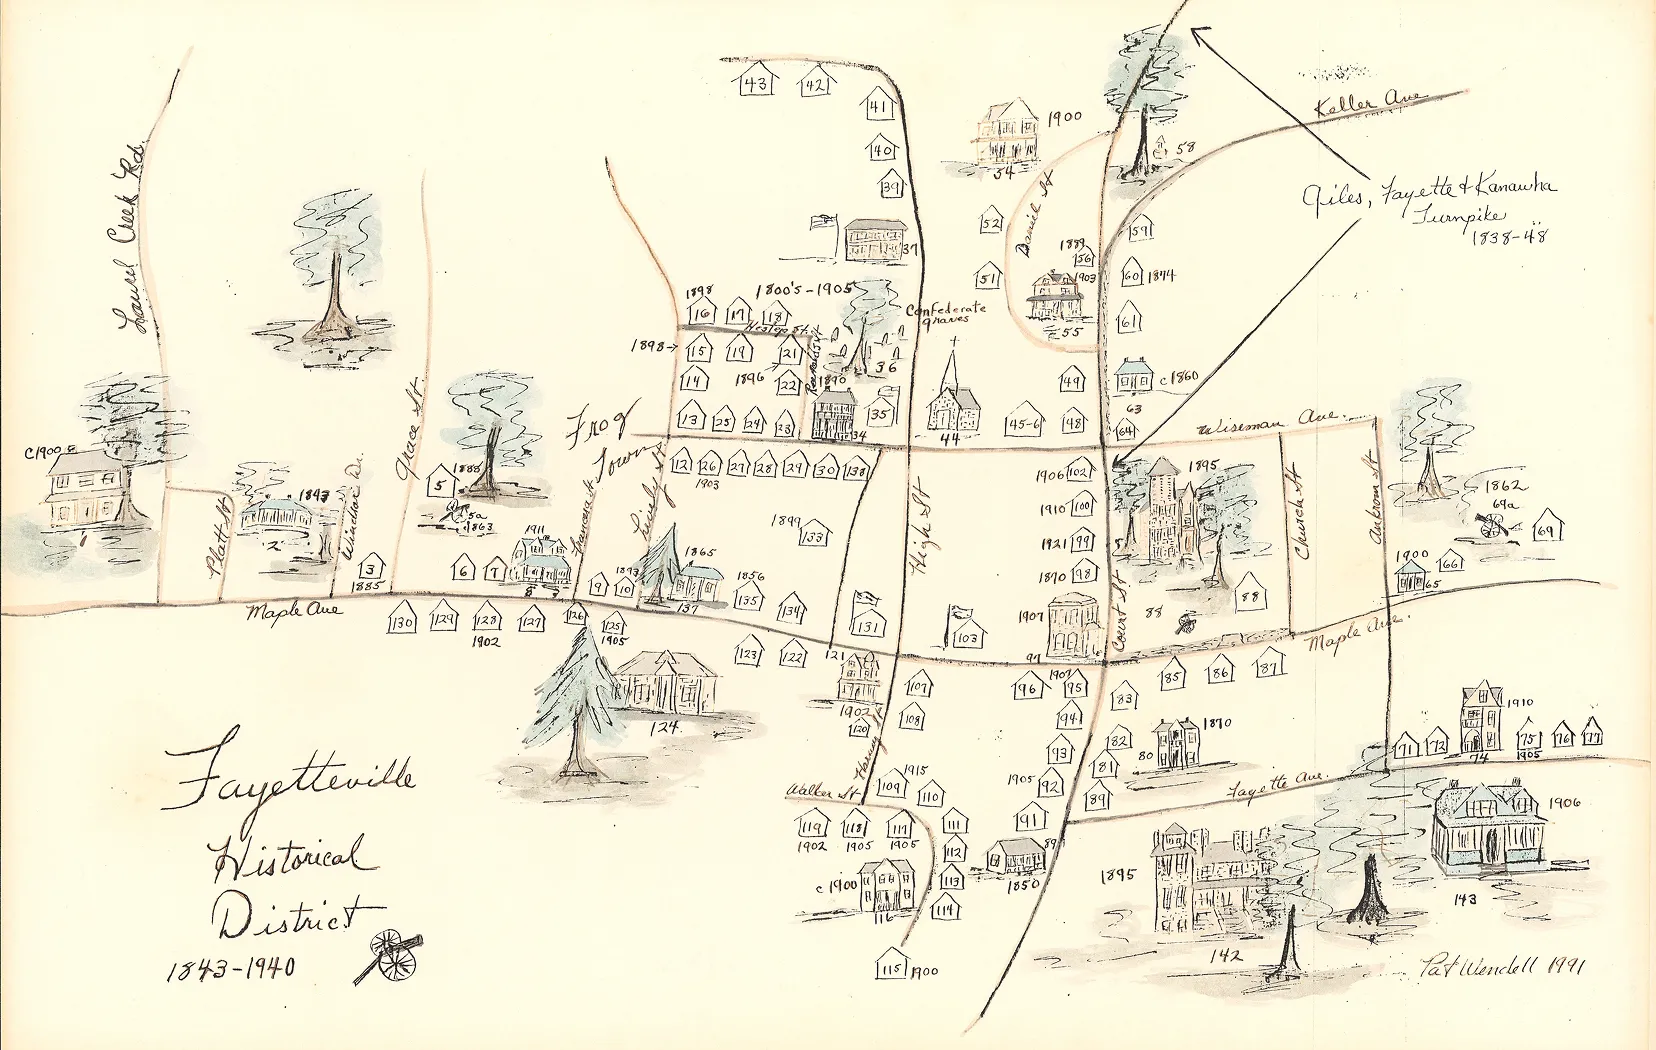 43
42
41
40
39
37
1900
54
58
Keller Ave.
Giles, Fayette & Kanawha
Turnpike
1838-48
Laurel Creek Rd.
Daniel St
52
51
59
1889
56
1903
55
60 1874
61
1898
16
17
1800's-1905
18
Heslop St.
Confederate
graves
36
1898→
15
19
21
1896
14
22
1890
13
25
24
23
34
35
44
45-6
48
49
c1860
63
64
Wiseman Ave.
Frog
Town
Grace St.
c1900
1
Platt St
2
Windsor Dr.
3
1885
5
5a
1863
6
7
1911
8
9
10
12
26
1903
27
28
29
30
138
1899
133
1865
137
1856
135
134
High St
131
103
1906 102
1910 100
1921 99
1890 98
1907
97
Court St
1895
88
88
Church St
1862
69a
69
1900
65
66
Maple Ave
Maple Ave.
130
129
128
1902
127
126
125
1905
124
123
122
121
1902
120
107
108
96
95
94
93
1905
92
91
83
85
86
87
82
81
80
1870
89
Fayette Ave.
71
72
1910
74
75
1905
76
77
Walker St
1915
109
110
119
1902
118
1905
117
1905
111
112
113
114
c1900
116
115 1900
1850
1895
142
1906
143
Fayetteville
Historical
District
1843-1940
Pat Wendell 1991